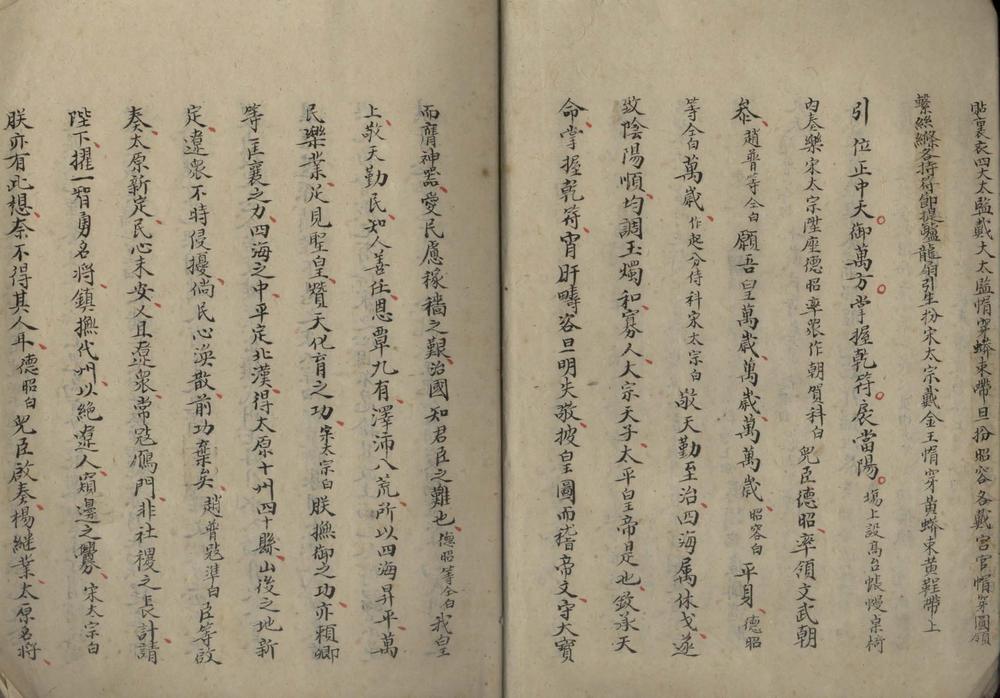 貼裏衣四大太監戴大太監帽穿蟒束帶旦扮昭容各戴宮官帽穿圓領
繫絲縧各持符節提爐龍扇引生扮宋太宗戴金王帽穿黃蟒束黃鞓帶上
引 位正中天御萬方掌握乾符扆當陽場上設高台帳幔桌椅
內奏樂宋太宗陞座德昭率眾作朝賀科白 兒臣德昭率領文武朝
叅趙普等仝白願吾皇萬歲萬歲萬萬歲昭容白 平身德昭
等仝白萬歲作起分侍科宋太宗白 敬天勤至治四海属休戈遂
致陰陽順均調玉燭和寡人大宗天子太平皇帝是也欽承天
命掌握乾符宵旰疇咨旦明失敬披皇圖而稽帝文守大寶
而膺神器愛民慮稼穡之艱治國知君臣之難也德昭等仝白我皇
上敬天勤民知人善任恩覃九有澤沛八荒所以四海昇平萬
民樂業足見聖皇贊天化育之功宋太宗白 朕撫御之功亦賴卿
等匡襄之力四海之中平定北漢得太原十州四十縣山後之地新
定遼眾不時侵擾倘民心渙散前功棄矣趙普寇準白臣等啟
奏太原新定民心未安乂且遼眾常寇鴈門非社稷之長計請
陛下擢一智勇名將鎮撫代州以絕遼人窺邊之釁宋太宗白
朕亦有此想奈不得其人耳德昭白 兒臣啟奏楊継業太原名將